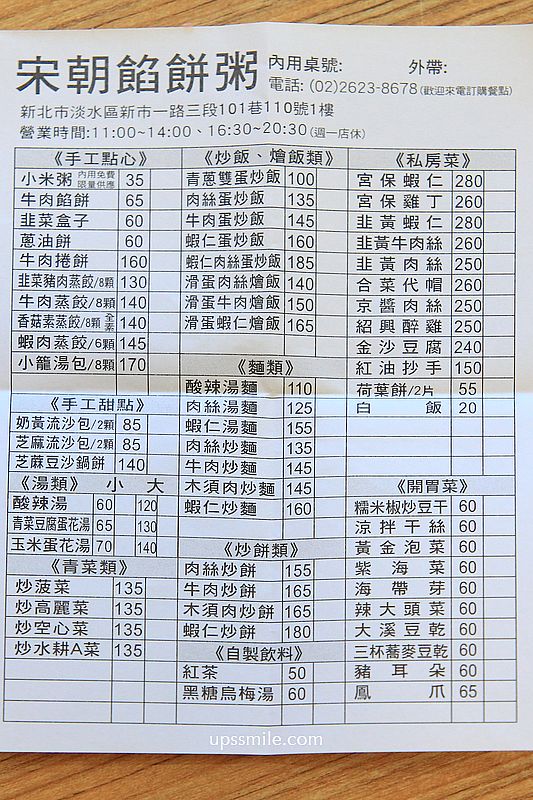 宋朝餡餅粥 內用桌號: 外帶:
電話: (02)2623-8678(歡迎來電訂購餐點)
新北市淡水區新市一路三段101巷110號1樓
營業時間:11:00~14:00、16:30~20:30(週一店休)
《手工點心》
小米粥 內用免費 限量供應 35
牛肉餡餅 65
韭菜盒子 60
蔥油餅 60
牛肉捲餅 160
韭菜豬肉蒸餃/8顆 130
牛肉蒸餃/8顆 140
香菇素蒸餃/8顆 全素 140
蝦肉蒸餃/6顆 145
小籠湯包/8顆 170
《手工甜點》
奶黃流沙包/2顆 85
芝麻流沙包/2顆 85
芝蔴豆沙鍋餅 140
《湯類》 小 大
酸辣湯 60 120
青菜豆腐蛋花湯 65 130
玉米蛋花湯 70 140
《青菜類》
炒菠菜 135
炒高麗菜 135
炒空心菜 135
炒水耕A菜 135
《炒飯、燴飯類》
青蔥雙蛋炒飯 100
肉絲蛋炒飯 135
牛肉蛋炒飯 145
蝦仁蛋炒飯 160
蝦仁肉絲蛋炒飯 185
滑蛋肉絲燴飯 140
滑蛋牛肉燴飯 150
滑蛋蝦仁燴飯 165
《麵類》
酸辣湯麵 110
肉絲湯麵 125
蝦仁湯麵 155
肉絲炒麵 135
牛肉炒麵 145
木須肉炒麵 145
蝦仁炒麵 160
《炒餅類》
肉絲炒餅 155
牛肉炒餅 165
木須肉炒餅 165
蝦仁炒餅 180
《自製飲料》
紅茶 50
黑糖烏梅湯 60
《私房菜》
宮保蝦仁 280
宮保雞丁 260
韭黃蝦仁 280
韭黃牛肉絲 260
韭黃肉絲 250
合菜代帽 260
京醬肉絲 250
紹興醉雞 250
金沙豆腐 240
紅油抄手 150
荷葉餅/2片 55
白飯 20
《開胃菜》
糯米椒炒豆干 60
涼拌干絲 60
黃金泡菜 60
紫海菜 60
海帶芽 60
辣大頭菜 60
大溪豆乾 60
三杯蕎麥豆乾 60
豬耳朵 60
鳳爪 65
upssmile.com